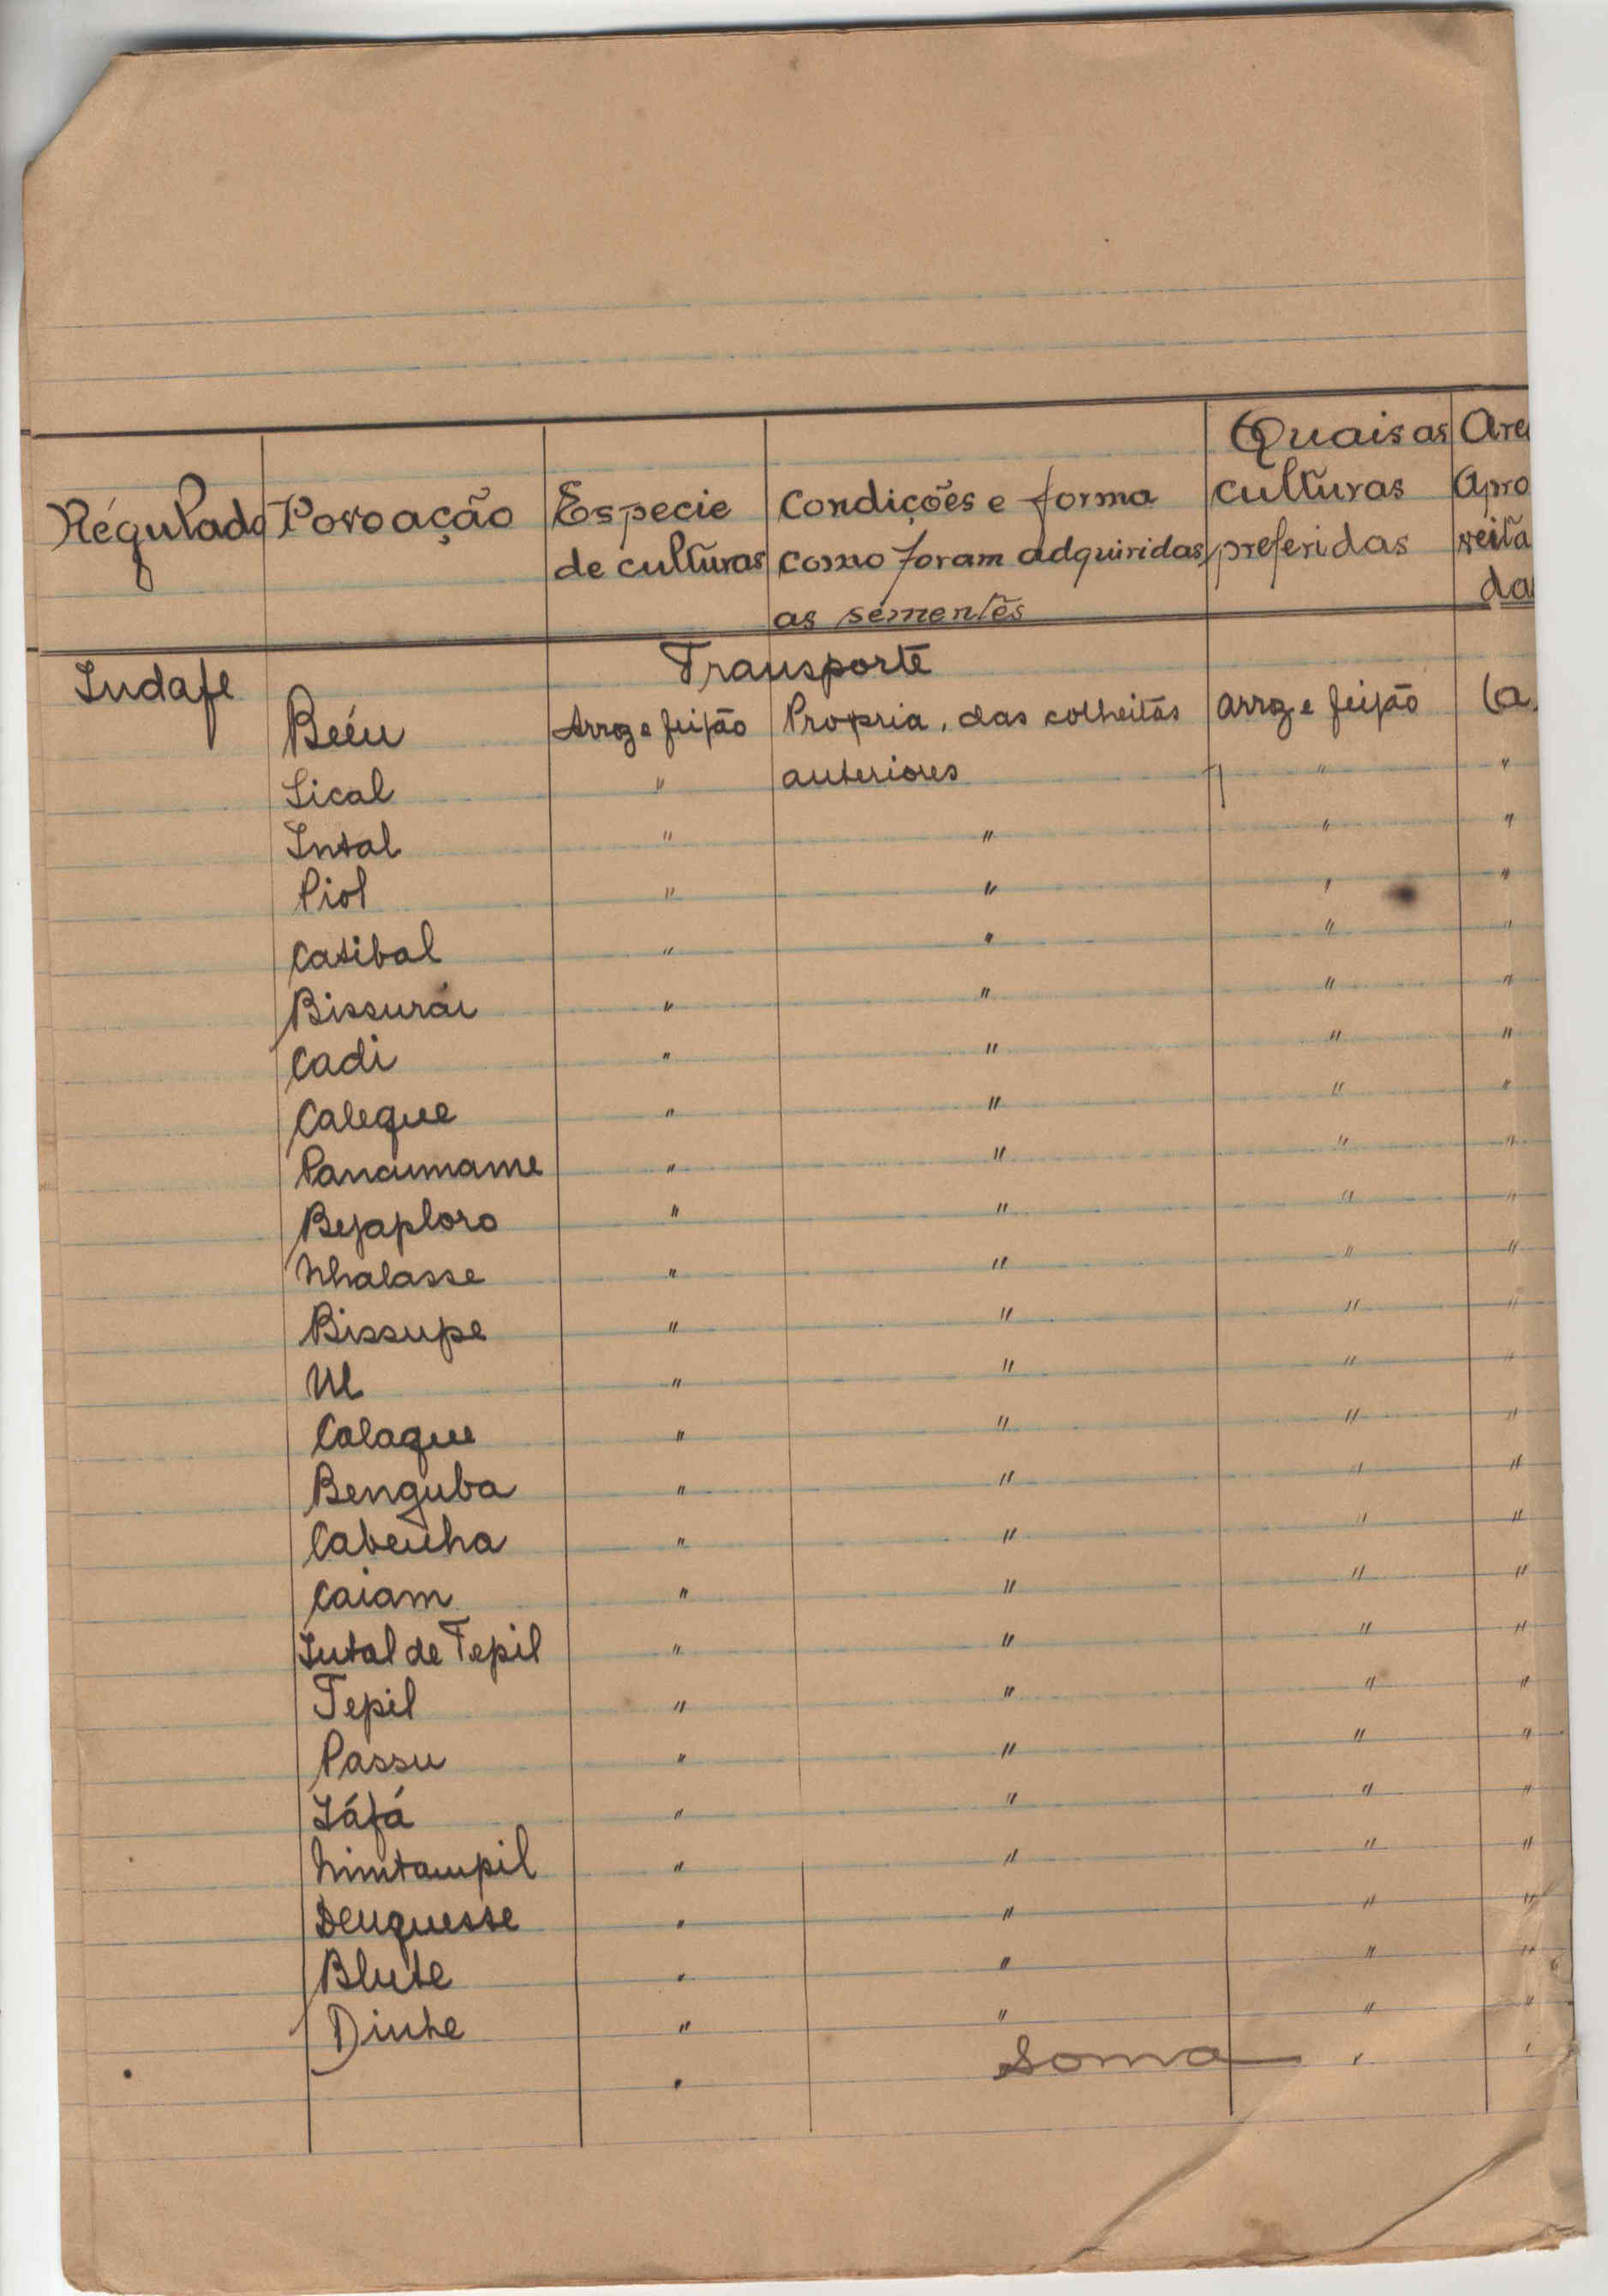 Régulado Povoação Especie de culturas Condições e forma como foram adquiridas as sementes Quais as culturas preferidas Area Apro veita da
Indafe Transporte
Beéu Arroz e feijão Propria, das colheitas Arroz e feijão (a
Sical " anteriores " "
Intal " " " "
Piol " " " "
Catibal " " " "
Bissurái " " " "
Cadi " " " "
Caleque " " " "
Panaumame " " " "
Bejaploro " " " "
Nhalasse " " " "
Bissupe " " " "
Ul " " " "
Calaque " " " "
Benguba " " " "
Cabenha " " " "
Caiam " " " "
Intal de Tepil " " " "
Tepil " " " "
Passu " " " "
Iáfá " " " "
Nimtampil " " " "
Denquesse " " " "
Blute " " " "
Dinhe " " " "
" Soma " "